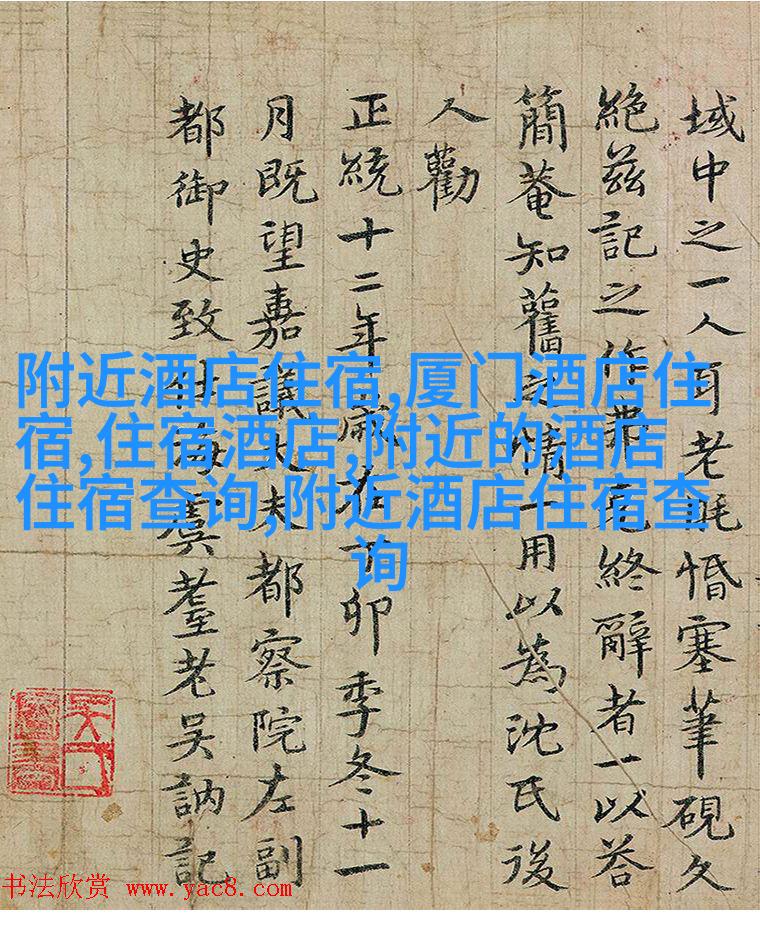 域中之一人耳老眊惛塞筆硯久
絶茲記之作弗克終辭者一以荅
簡菴知舊之情一用以為沈氏後
人勸
正統十二年歲在丁卯季冬十一
月既望嘉議大夫都察院左副
都御史致仕海虞耋老吳訥記
附近酒店住宿,厦门酒店住
宿,住宿酒店,附近的酒店
住宿查询,附近酒店住宿查
询
书法欣赏 www.yac8.com